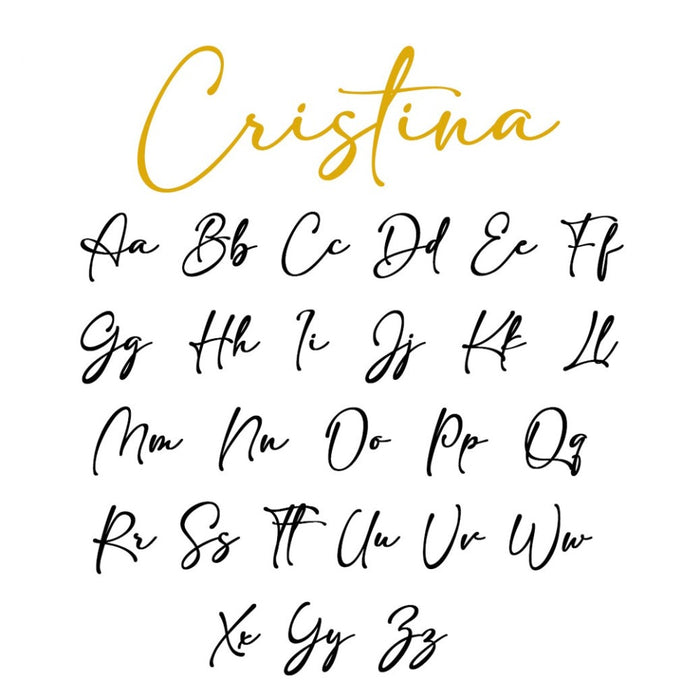 Cristina
Aa Bb Cc Dd Ee Ff
Gg Hh Ii Jj Kk Ll
Mm Nn Oo Pp Qq
Rr Ss Tt Uu Vv Ww
Xx Yy Zz